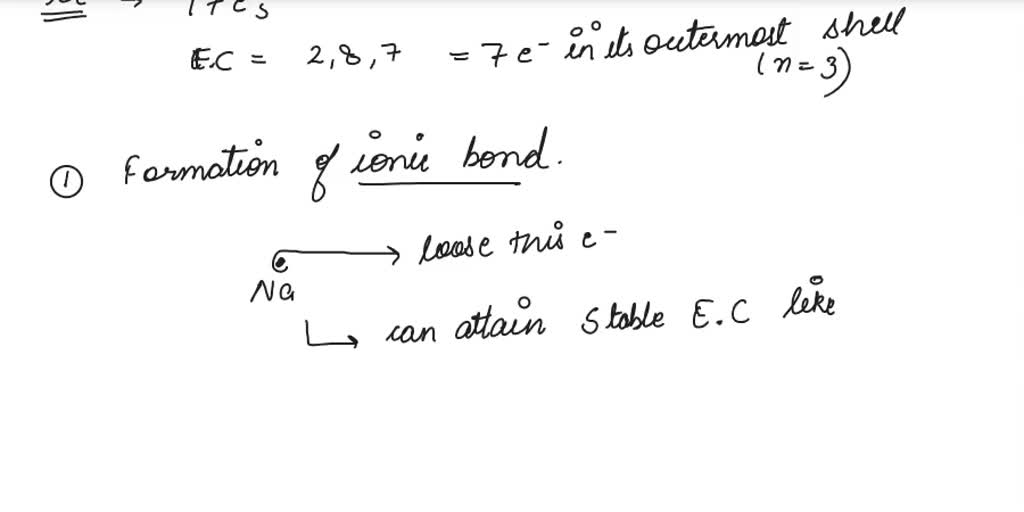 E.C = 2,8,7 = 7 e⁻ in its outermost shell
(n=3)
① Formation of ionic bond.
loose this e⁻
Na
can attain stable E.C like